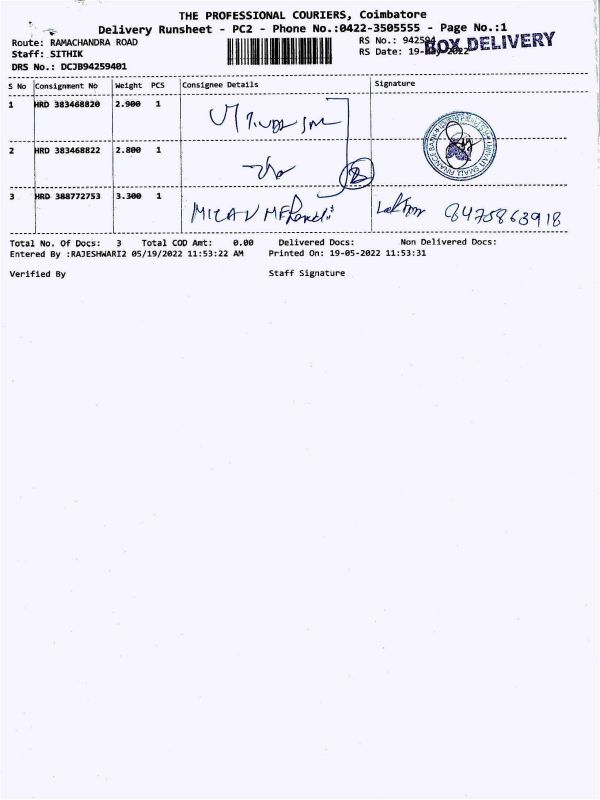 THE PROFESSIONAL COURIERS, Coimbatore
Delivery Runsheet - PC2 - Phone No.:0422-3505555 - Page No.:1
Route: RAMACHANDRA ROAD
Staff: SITHIK
DRS No.: DCJB94259401
RS No.: 942594
RS Date: 19-May-2022
BOX DELIVERY
S No Consignment No Weight PCS Consignee Details Signature
1 HRD 383468820 2.900 1
2 HRD 383468822 2.800 1
2
3 HRD 388772753 3.300 1 8475863918
Total No. Of Docs: 3 Total COD Amt: 0.00 Delivered Docs: Non Delivered Docs:
Entered By :RAJESHWARI2 05/19/2022 11:53:22 AM Printed On: 19-05-2022 11:53:31
Verified By Staff Signature